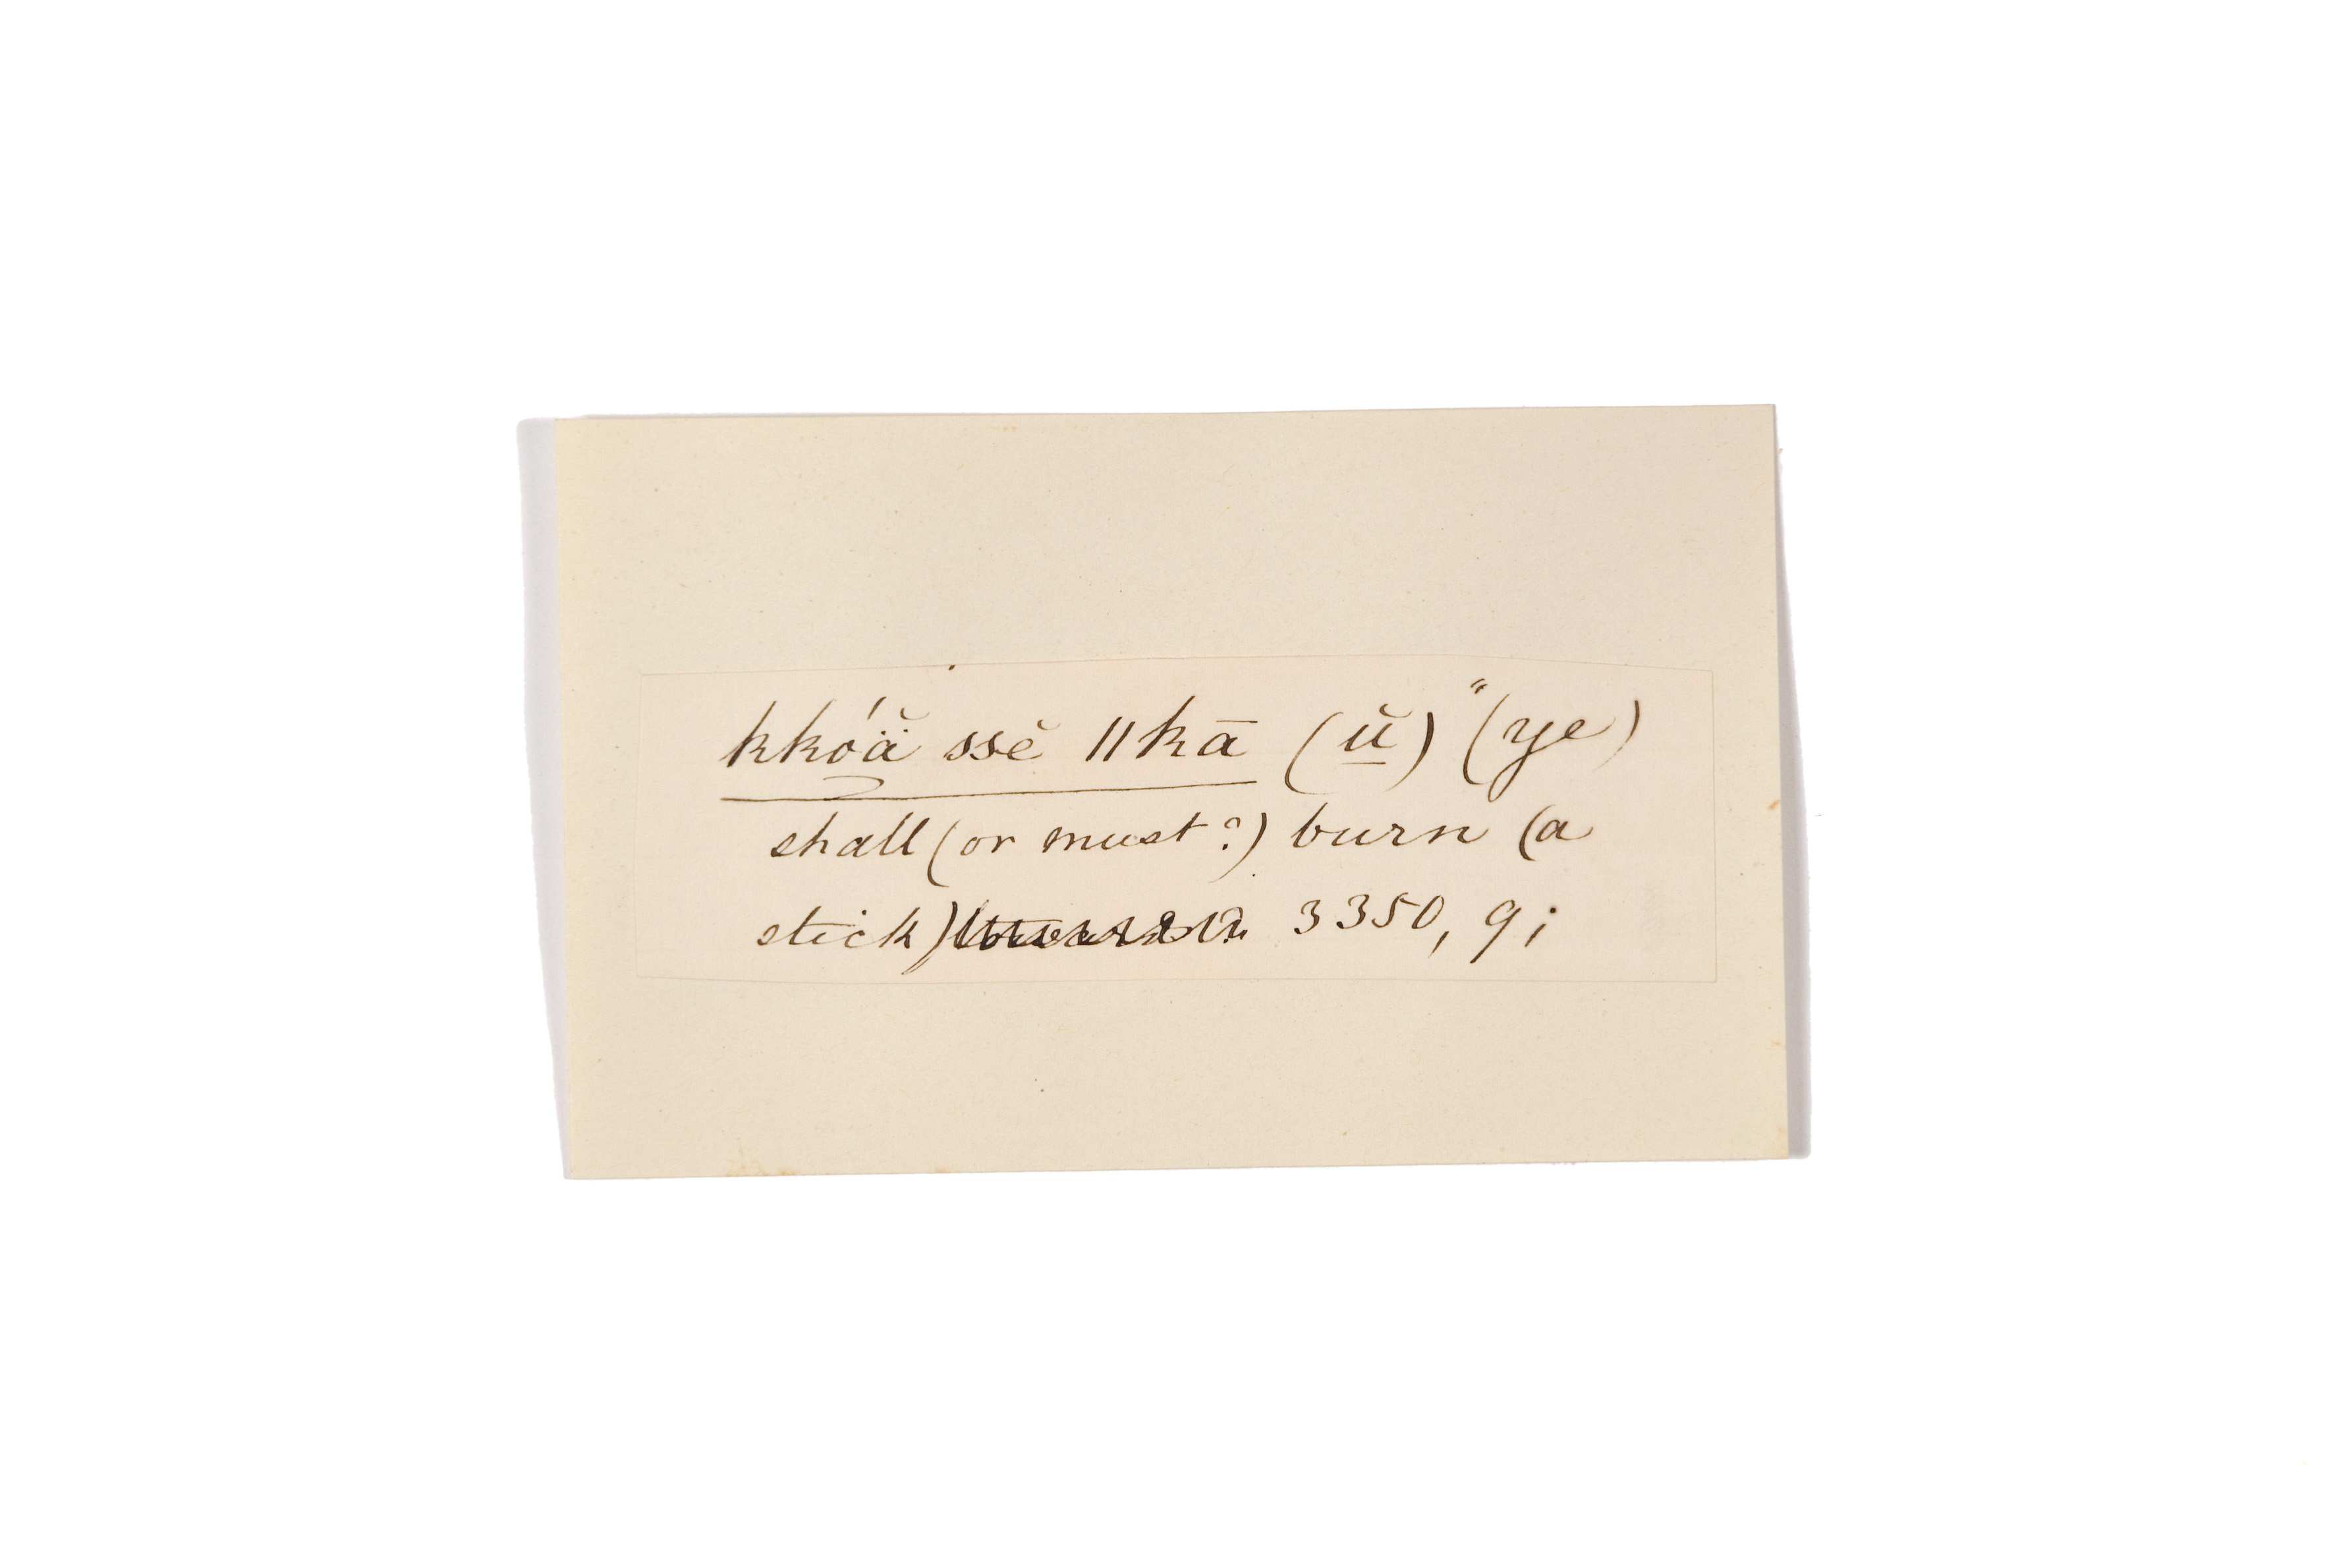 kkóä̆ ssĕ ǁkā (ŭ̱) "(ye)
shall (or must?) burn (a
stick) 3350, 9;